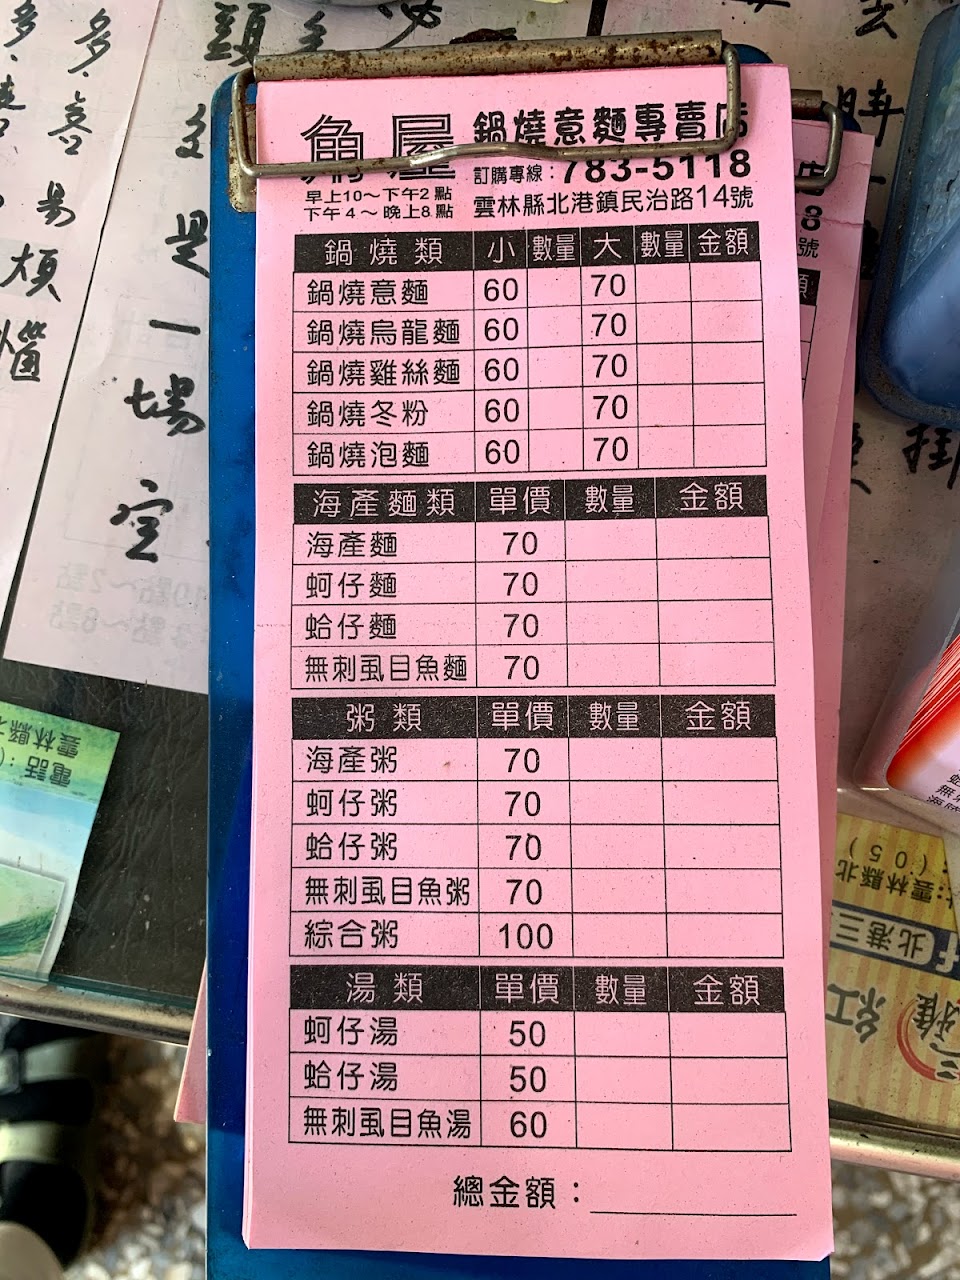 角屋 鍋燒意麵專賣店
訂購專線：783-5118
早上10～下午2點
下午4～晚上8點
雲林縣北港鎮民治路14號
鍋燒類 小 數量 大 數量 金額
鍋燒意麵 60 70
鍋燒烏龍麵 60 70
鍋燒雞絲麵 60 70
鍋燒冬粉 60 70
鍋燒泡麵 60 70
海產麵類 單價 數量 金額
海產麵 70
蚵仔麵 70
蛤仔麵 70
無刺虱目魚麵 70
粥類 單價 數量 金額
海產粥 70
蚵仔粥 70
蛤仔粥 70
無刺虱目魚粥 70
綜合粥 100
湯類 單價 數量 金額
蚵仔湯 50
蛤仔湯 50
無刺虱目魚湯 60
總金額：
是一場空
煩惱
雲林縣北
電話：(
雲林縣北
(05)
北港三
紅